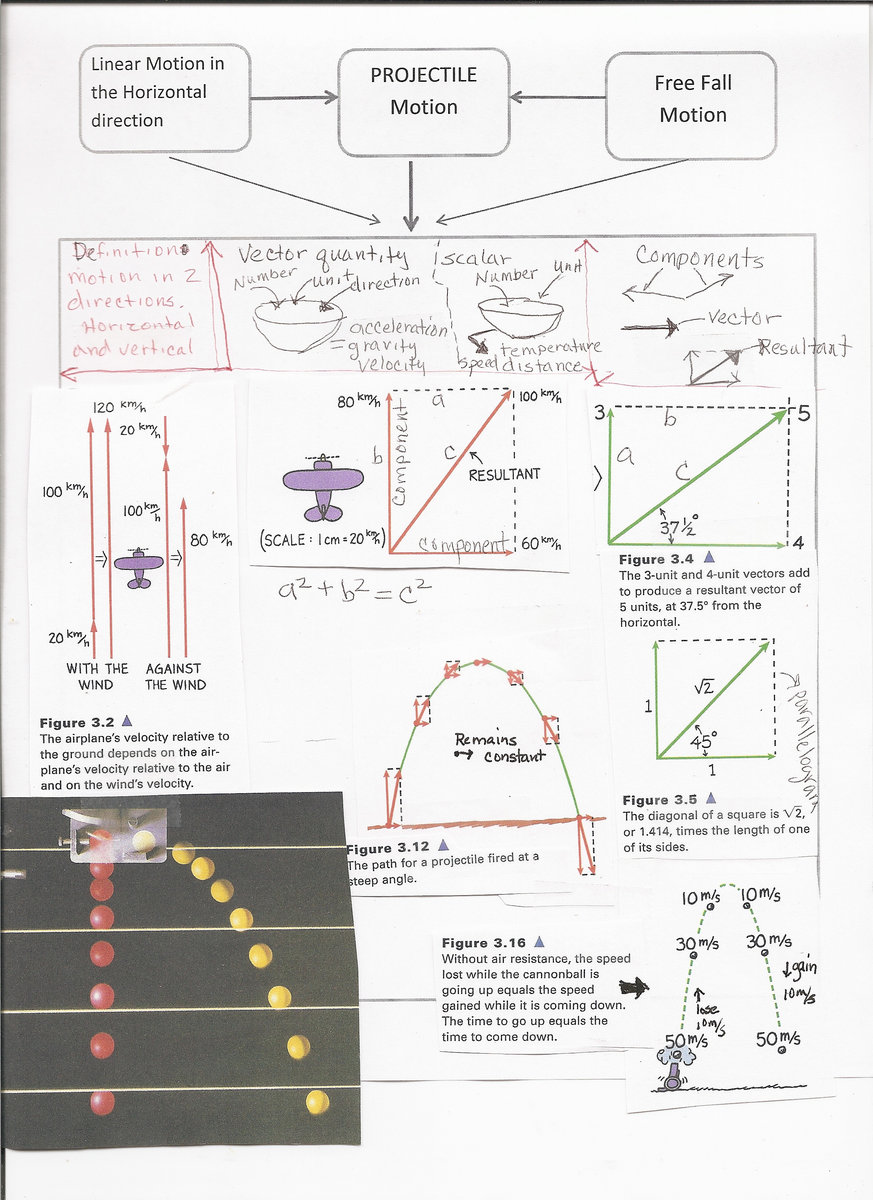 Linear Motion in
the Horizontal
direction
PROJECTILE
Motion
Free Fall
Motion
Definition
motion in 2
directions.
Horizontal
and vertical
Vector quantity
Number
unit
direction
acceleration
= gravity
velocity
scalar
Number
unit
temperature
speed distance
Components
vector
Resultant
120 km/h
20 km/h
100 km/h
100 km/h
80 km/h
20 km/h
WITH THE
WIND
AGAINST
THE WIND
Figure 3.2
The airplane's velocity relative to
the ground depends on the air-
plane's velocity relative to the air
and on the wind's velocity.
80 km/h
a
100 km/h
b
component
c
RESULTANT
(SCALE: 1 cm = 20 km/h)
component
60 km/h
a² + b² = c²
3
b
5
a
c
37½°
4
Figure 3.4
The 3-unit and 4-unit vectors add
to produce a resultant vector of
5 units, at 37.5° from the
horizontal.
1
√2
45°
1
parallelogram
Figure 3.5
The diagonal of a square is √2,
or 1.414, times the length of one
of its sides.
Remains
constant
Figure 3.12
The path for a projectile fired at a
steep angle.
Figure 3.16
Without air resistance, the speed
lost while the cannonball is
going up equals the speed
gained while it is coming down.
The time to go up equals the
time to come down.
10 m/s
10 m/s
30 m/s
30 m/s
gain
10 m/s
lose
10 m/s
50 m/s
50 m/s